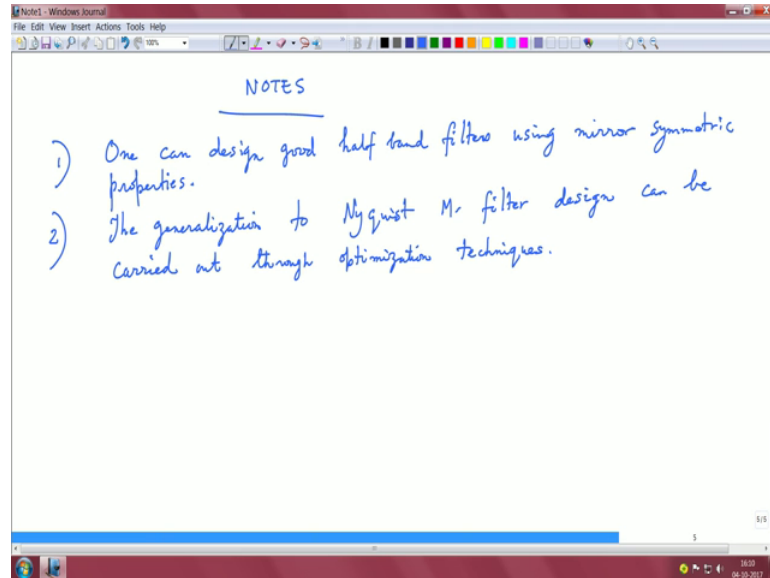 Note1 - Windows Journal
File Edit View Insert Actions Tools Help
100%
NOTES
1) One can design good half band filters using mirror symmetric
properties.
2) The generalization to Nyquist M filter design can be
carried out through optimization techniques.
5/5
5
16:10
04-10-2017